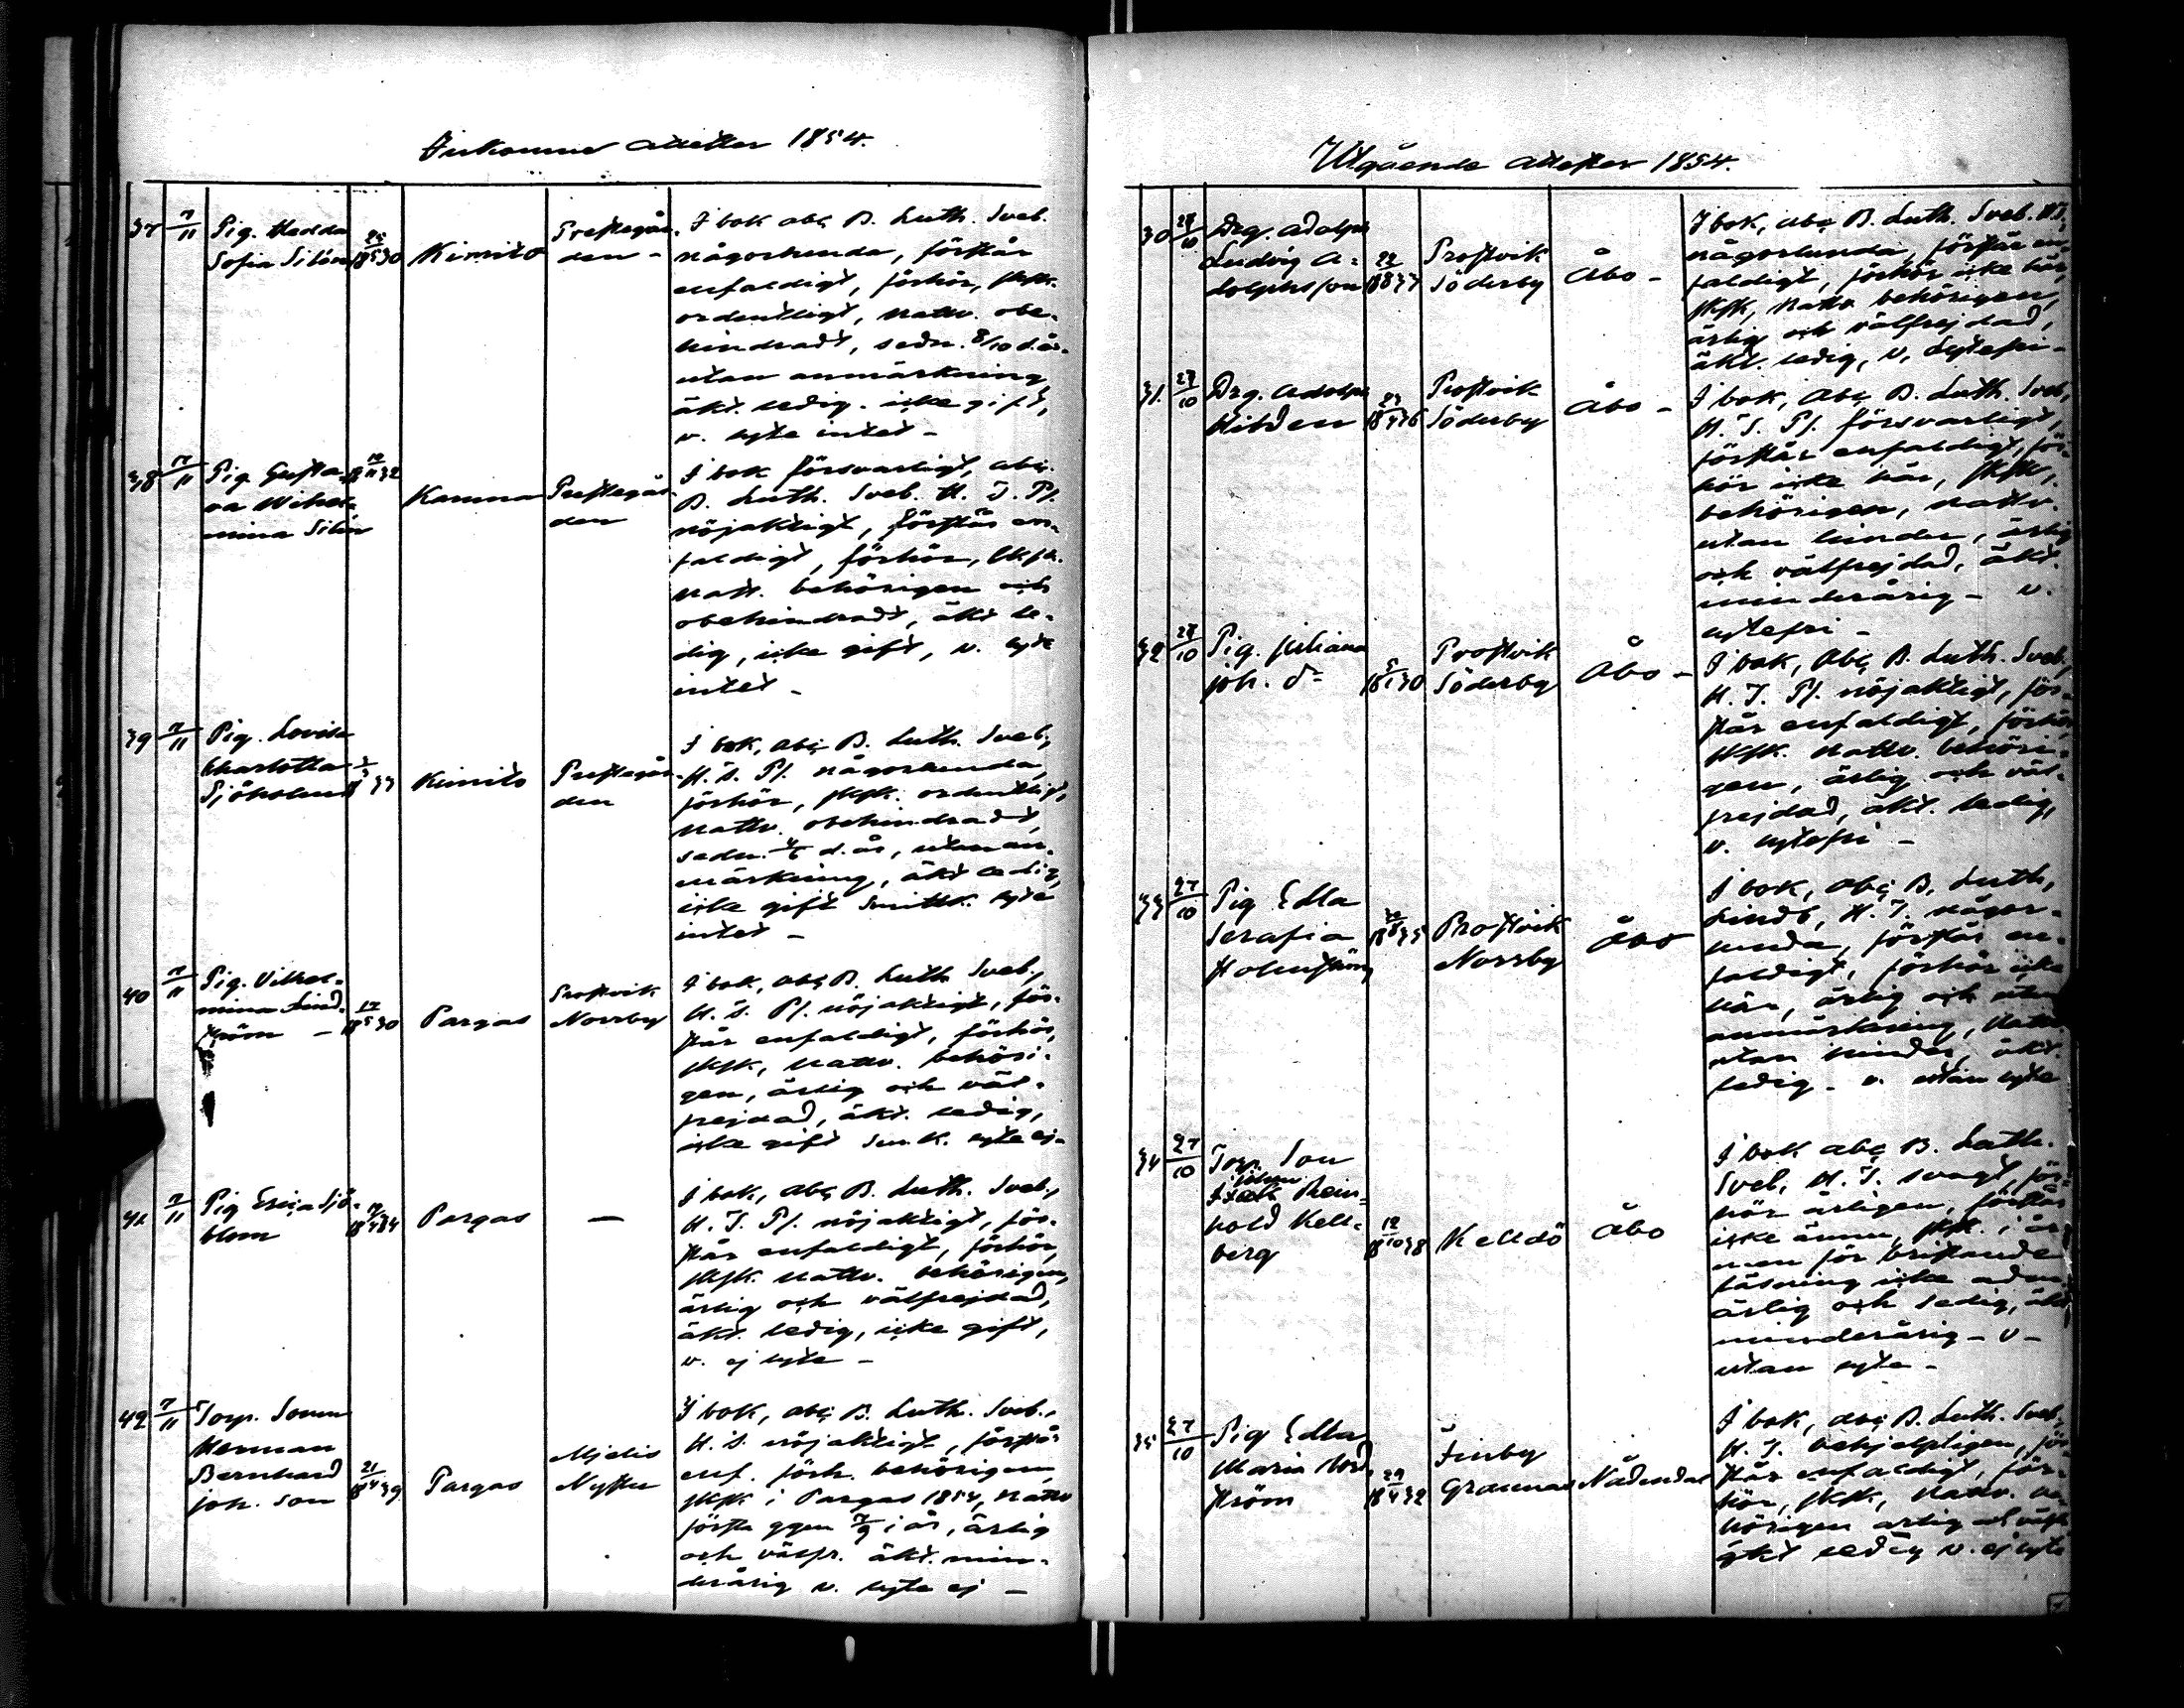 Inkomne attester 1854.
37 7/11 Pig. Hedda
Sofia Silén 25/5 1830 Kimito Prestegår-
den -
I bok abc B. Luth. Sveb.
någorlunda, förstår
enfaldigt, förhör, skrk.
ordentligt, nattv. obe-
hindradt, sedn. 8/10 d. år
utan anmärkning,
äkt. ledig. icke gift,
v. lyte intet -
38 7/11 Pig. Gusta-
va Wilhel-
mina Silén
Karuna Prestegår-
den
I bok försvarligt, abc
B. Luth. Sveb. H. T. Ps.
nöjaktigt, förstår en-
faldigt, förhör, skrk.
natt. behörigen och
obehindradt, äkt le-
dig, icke gift, v. lyte
intet -
39 7/11 Pig. Lovisa
Charlotta
Sjöholm
Kimito Prestegår-
den
I bok, abc B. Luth. Sveb.,
H. T. Ps. någorlunda,
förhör, skrk. ordentligt,
nattv. obehindradt,
sedn. d. år, utan an-
märkning, äkt ledig,
icke gift smittk. lyte
intet -
40 7/11 Pig. Vilhel-
mina Lind-
ström - 17/5 1830 Pargas Prostvik
Norrby
I bok, abc B. Luth Sveb.,
H. T. Ps. nöjaktigt, för-
står enfaldigt, förhör,
skrk, nattv. behöri-
gen, ärlig och väl-
frejdad, äkt. ledig,
icke gift sm.k. lyte ej -
41 7/11 Pig Erica Sjö-
blom Pargas -
I bok, abc B. Luth. Sveb.,
H. T. Ps. nöjaktigt, för-
står enfaldigt, förhör,
skrk. nattv. behörigen,
ärlig och välfrejdad,
äkt. ledig, icke gift,
v. ej lyte -
42 7/11 Torp. Sonen
Herman
Bernhard
Joh. Son 21/4 1839 Pargas Mjelis
Nystu
I bok, abc B. Luth. Sveb.,
H. T. nöjaktigt, förstår
enf. förh. behörigen,
skrk i Pargas 1854, nattv
första ggen 7/9 i år, ärlig
och välfr. äkt. min-
derårig v. lyte ej -
Utgående attester 1854.
30 27/10 Drg. Adolph
Ludvig A-
dolphsson 22/8 1837 Prostvik
Söderby Åbo -
I bok, abc B. Luth. Sveb. H T.
någorlunda, förstår en-
faldigt, förhör icke här,
skrk, nattv behörigen,
ärlig och välfrejdad,
äkt. ledig, v. lytefri -
31 27/10 Drg. Adolph
Hildén Prostvik
Söderby Åbo -
I bok, abc B. Luth. Sveb.
H. T. Ps. försvarligt,
förstår enfaldigt, för-
hör icke här, skrk,
behörigen, nattv.
utan hinder, ärlig
och välfrejdad, äkt.
minderårig - v.
lytefri -
32 27/10 Pig. Juliana
Joh. dr 5/1 1830 Prostvik
Söderby Åbo -
I bok, abc B. Luth. Sveb,
H. T. Ps. nöjaktigt, för-
står enfaldigt, förhör,
skrk. nattv. behöri-
gen, ärlig och väl-
frejdad, äkt. ledig,
v. lytefri -
33 27/10 Pig Edla
Serafia
Holmström Prostvik
Norrby Åbo
I bok, abc B, Luth,
Lindb, H. T. någor-
lunda, förstår en-
faldigt, förhör icke
här, ärlig och utan
anmärkning, nattv.
utan hinder, äkt.
ledig - v. utan lyte
34 27/10 Torp. Son
Johan
Rein-
hold Kell-
berg 12/10 1838 Kelldö Åbo
I bok abc B. Luth.
Sveb, H. T. svagt, för-
hör ärligen, förstår
icke ännu, skrk. i år
men för bristande
läsning icke adm.
ärlig och sedig, äkt
minderårig - v -
utan lyte -
35 27/10 Pig Edla
Maria Nord-
ström 29/4 1832 Finby
Grannas Nådendal
I bok, abc B. Luth. Sveb.,
H. T. behjelpligen, för-
står enfaldigt, för-
hör, skrk, nattv. be-
hörigen ärlig och välfr
äkt ledig v. ej lyte